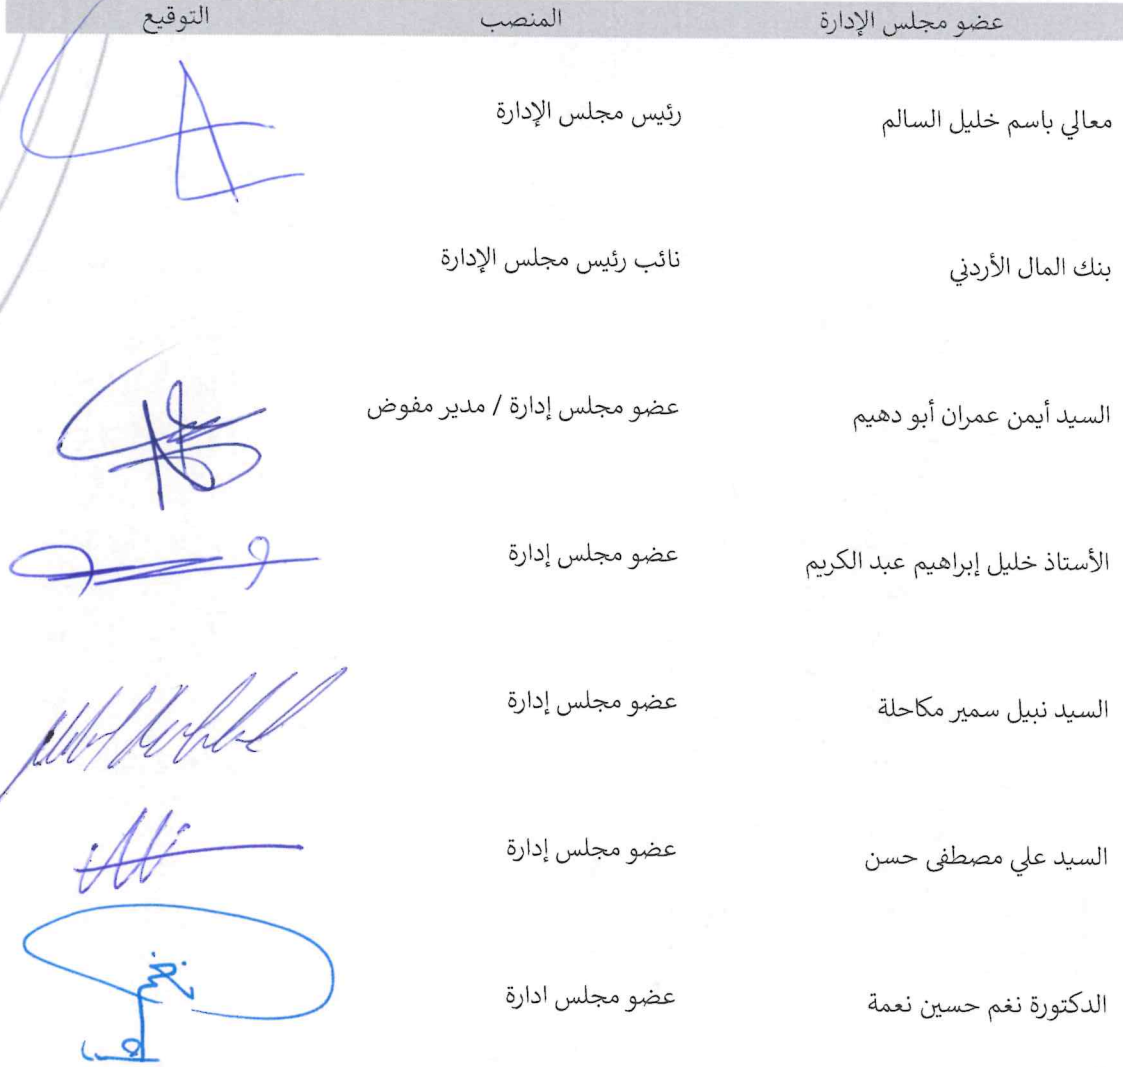 عضو مجلس الإدارة المنصب التوقيع
معالي باسم خليل السالم رئيس مجلس الإدارة
بنك المال الأردني نائب رئيس مجلس الإدارة
السيد أيمن عمران أبو دهيم عضو مجلس إدارة / مدير مفوض
الأستاذ خليل إبراهيم عبد الكريم عضو مجلس إدارة
السيد نبيل سمير مكاحلة عضو مجلس إدارة
السيد علي مصطفى حسن عضو مجلس إدارة
الدكتورة نغم حسين نعمة عضو مجلس ادارة